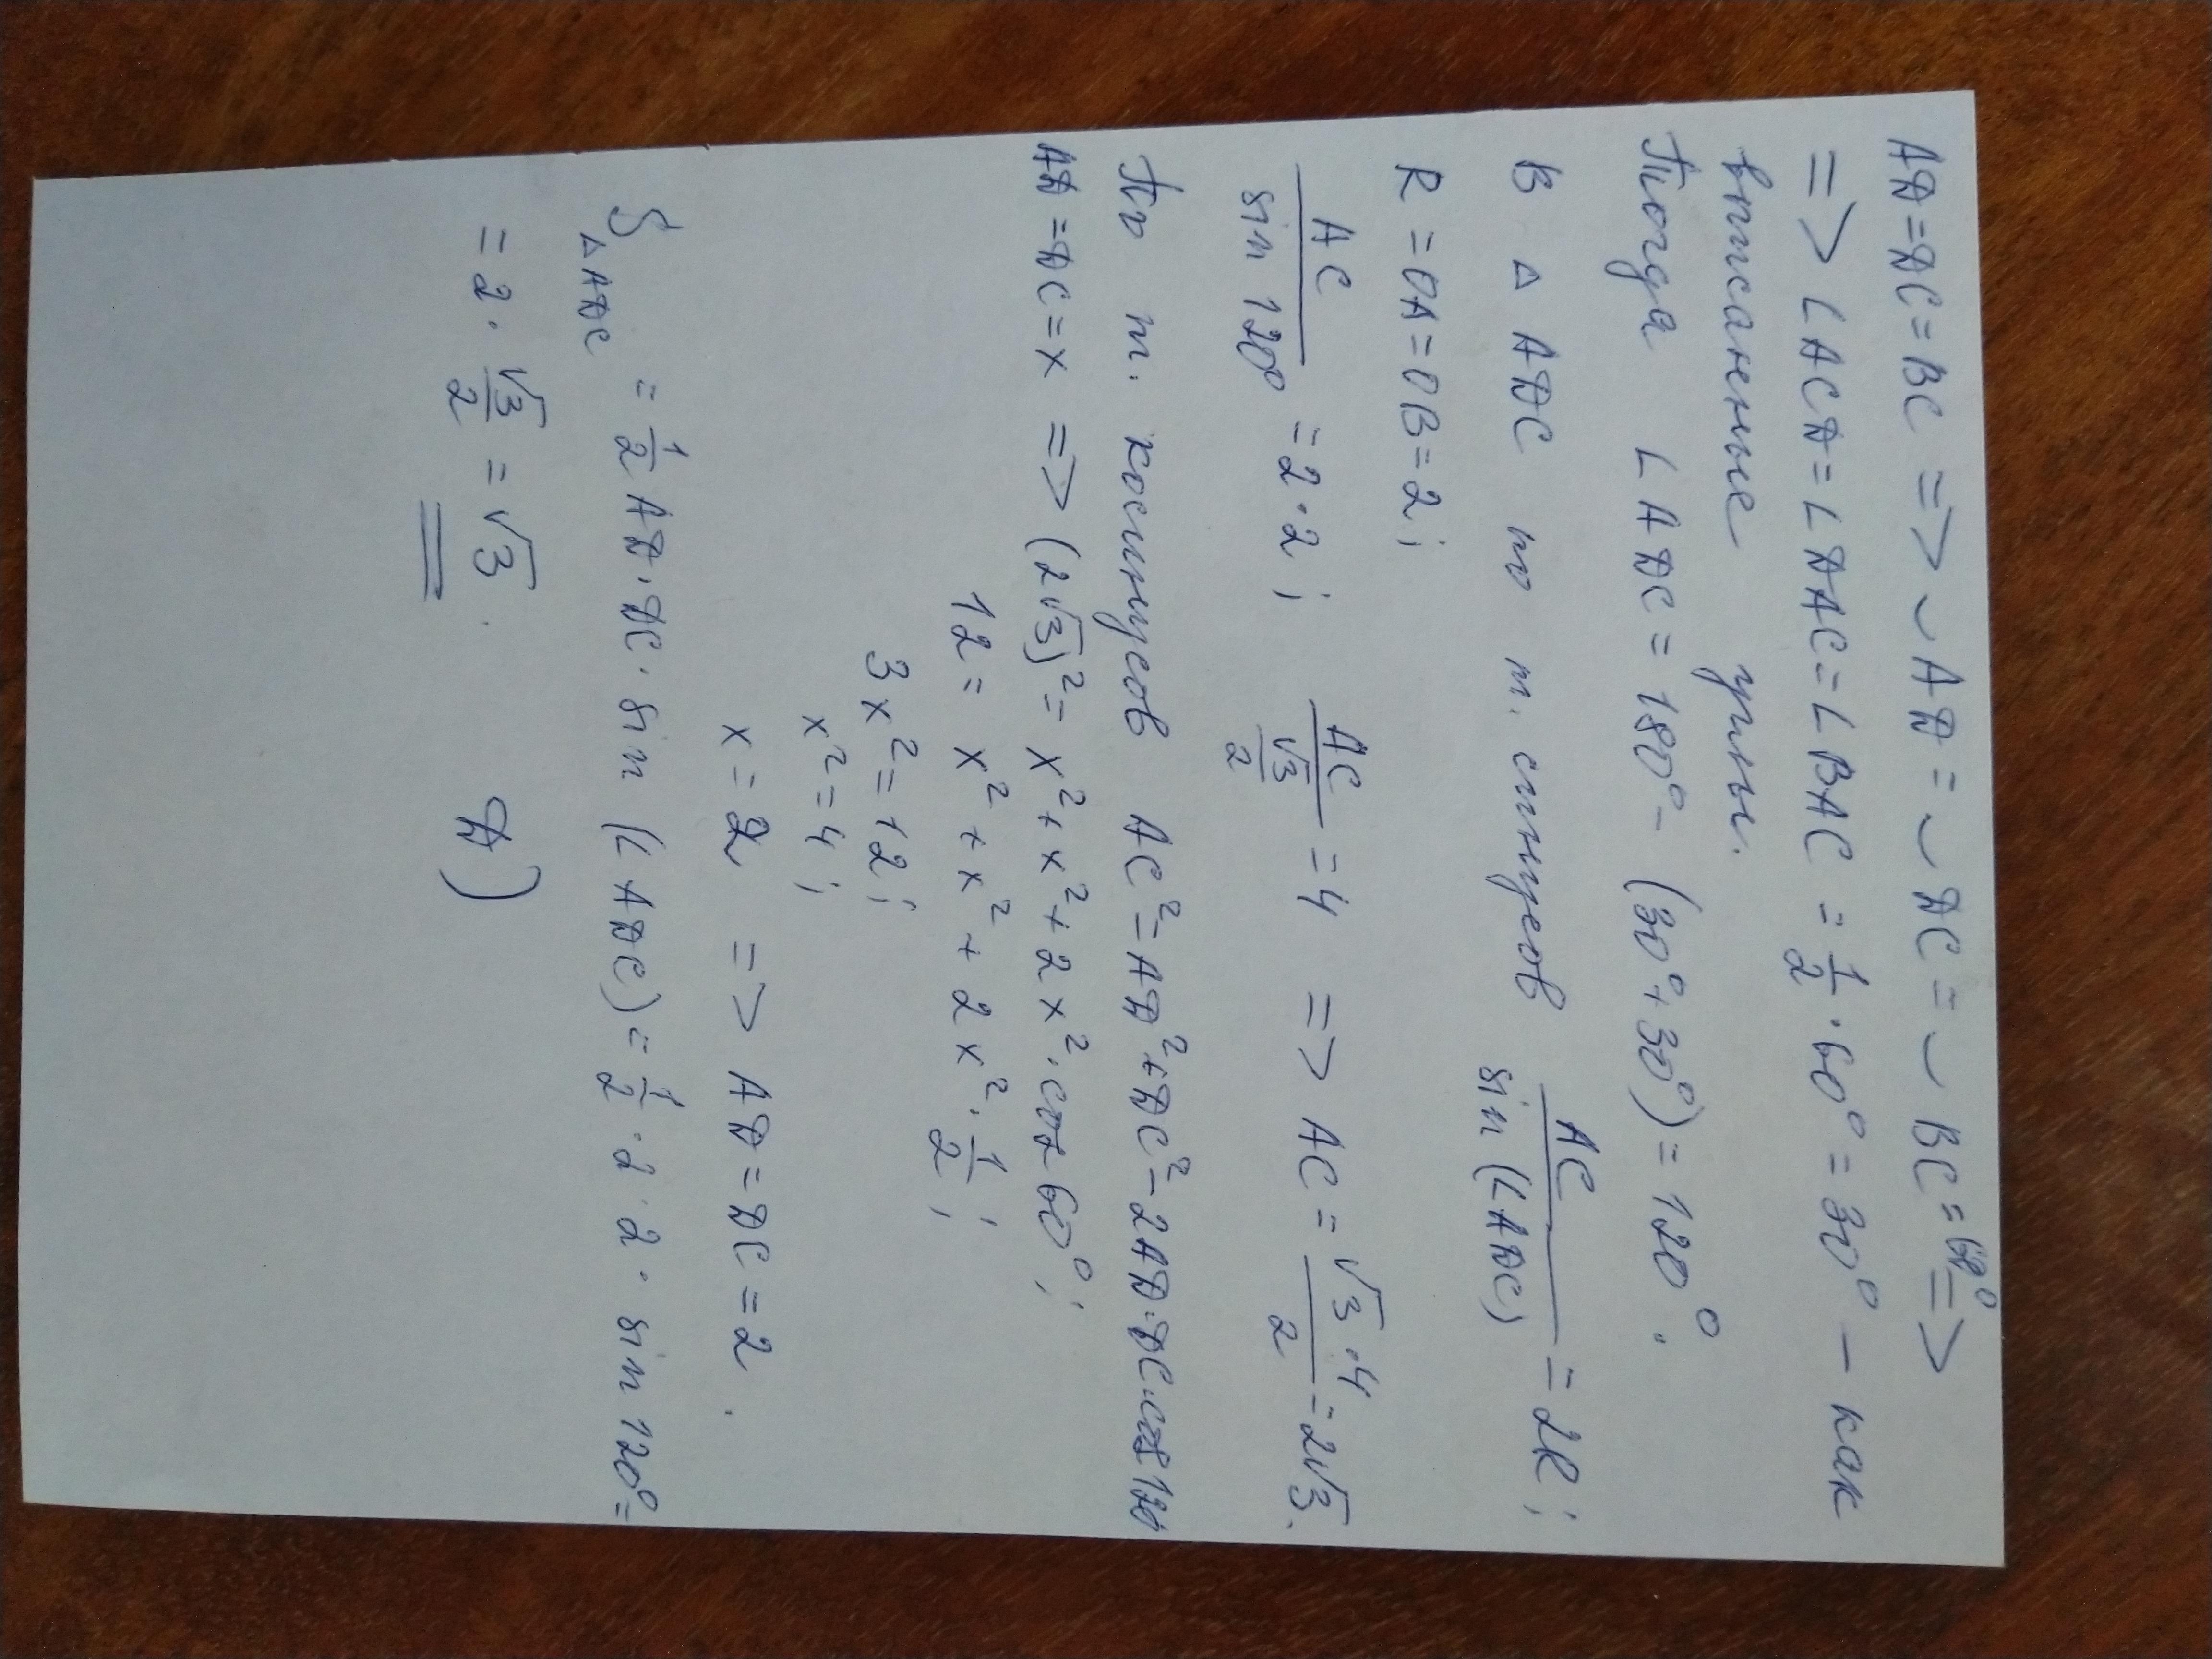 AD = DC = BC => ◡ AD = ◡ DC = ◡ BC = 60° =>
=> ∠ ACD = ∠ DAC = ∠ BAC = 1/2 · 60° = 30° – как
вписанные углы.
Тогда ∠ ADC = 180° – (30° + 30°) = 120°.
В △ ADC по т. синусов AC/sin (∠ ADC) = 2R;
R = OA = OB = 2;
AC/sin 120° = 2·2; AC/(√3/2) = 4 => AC = (√3 · 4)/2 = 2√3.
По т. косинусов AC² = AD² + DC² – 2AD·DC·cos 120
AD = DC = x => (2√3)² = x² + x² + 2x² · cos 60°;
12 = x² + x² + 2x² · 1/2;
3x² = 12;
x² = 4;
x = 2 => AD = DC = 2.
S△ADC = 1/2 AD · DC · sin (∠ ADC) = 1/2 · 2 · 2 · sin 120° =
= 2 · √3/2 = √3. Д)